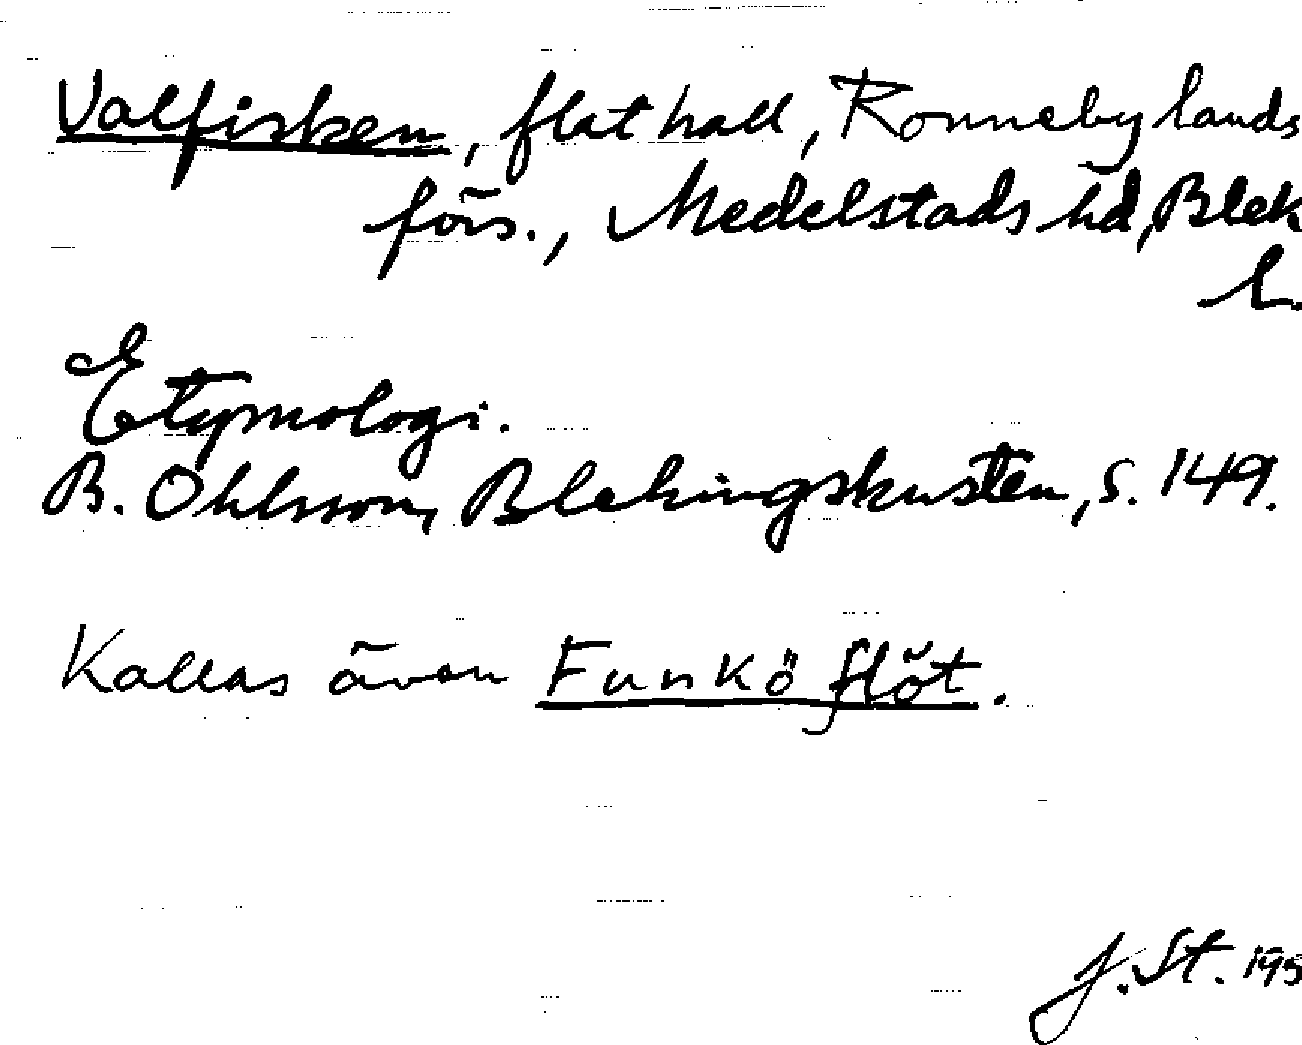 Valfisken, flat hall, Ronneby lands
förs., Medelstads hd, Blek
l.
Etymologi.
B. Ohlsson, Blekingskusten, s. 149.
Kallas även Funkö flöt.
J. St. 195